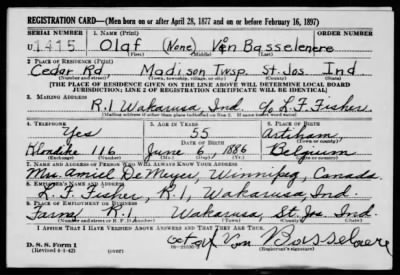 REGISTRATION CARD—(Men born on or after April 28, 1877 and on or before February 16, 1897)
SERIAL NUMBER 1. NAME (Print) ORDER NUMBER
U 1415 Olaf (None) Van Basselenere
(First) (Middle) (Last)
2. PLACE OF RESIDENCE (Print)
Cedar Rd Madison Twsp. St. Jos. Ind.
(Number and street) (Town, township, village, or city) (County) (State)
[THE PLACE OF RESIDENCE GIVEN ON THE LINE ABOVE WILL DETERMINE LOCAL BOARD
JURISDICTION; LINE 2 OF REGISTRATION CERTIFICATE WILL BE IDENTICAL]
3. MAILING ADDRESS
R.1 Wakarusa, Ind. c/o L. F. Fisher
[Mailing address if other than place indicated on line 2. If same insert word same]
4. TELEPHONE 5. AGE IN YEARS 6. PLACE OF BIRTH
Yes 55
DATE OF BIRTH (Town or county)
Klondike 116 June 6, 1886 Belgium
(Exchange) (Number) (Mo.) (Day) (Yr.) (State or country)
7. NAME AND ADDRESS OF PERSON WHO WILL ALWAYS KNOW YOUR ADDRESS
Mrs. Amiel De Meyer, Winnipeg, Canada
8. EMPLOYER'S NAME AND ADDRESS
L. F. Fisher, R.1, Wakarusa, Ind.
9. PLACE OF EMPLOYMENT OR BUSINESS
Farm R.1 Wakarusa, St. Jos. Ind.
(Number and street or R. F. D. number) (Town) (County) (State)
I AFFIRM THAT I HAVE VERIFIED ABOVE ANSWERS AND THAT THEY ARE TRUE.
D. S. S. Form 1
(Revised 4-1-42) (over) Van
(Registrant's signature)